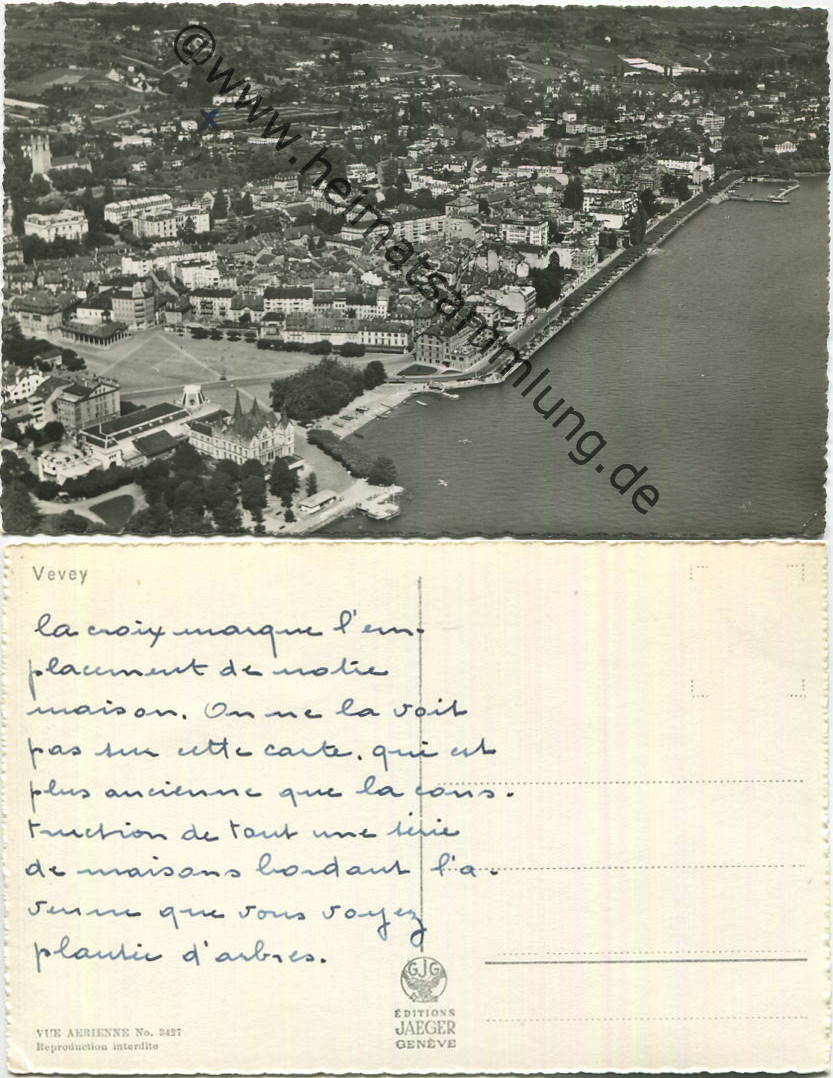 @www.heimatsammlung.de
Vevey
la croix marque l'em-
placement de notre
maison. On ne la voit
pas sur cette carte, qui est
plus ancienne que la cons-
truction de tout une série
de maisons bordant l'a-
venue que vous voyez
plantée d'arbres.
GJG
ÉDITIONS
JAEGER
GENÈVE
VUE AERIENNE No. 3427
Reproduction interdite